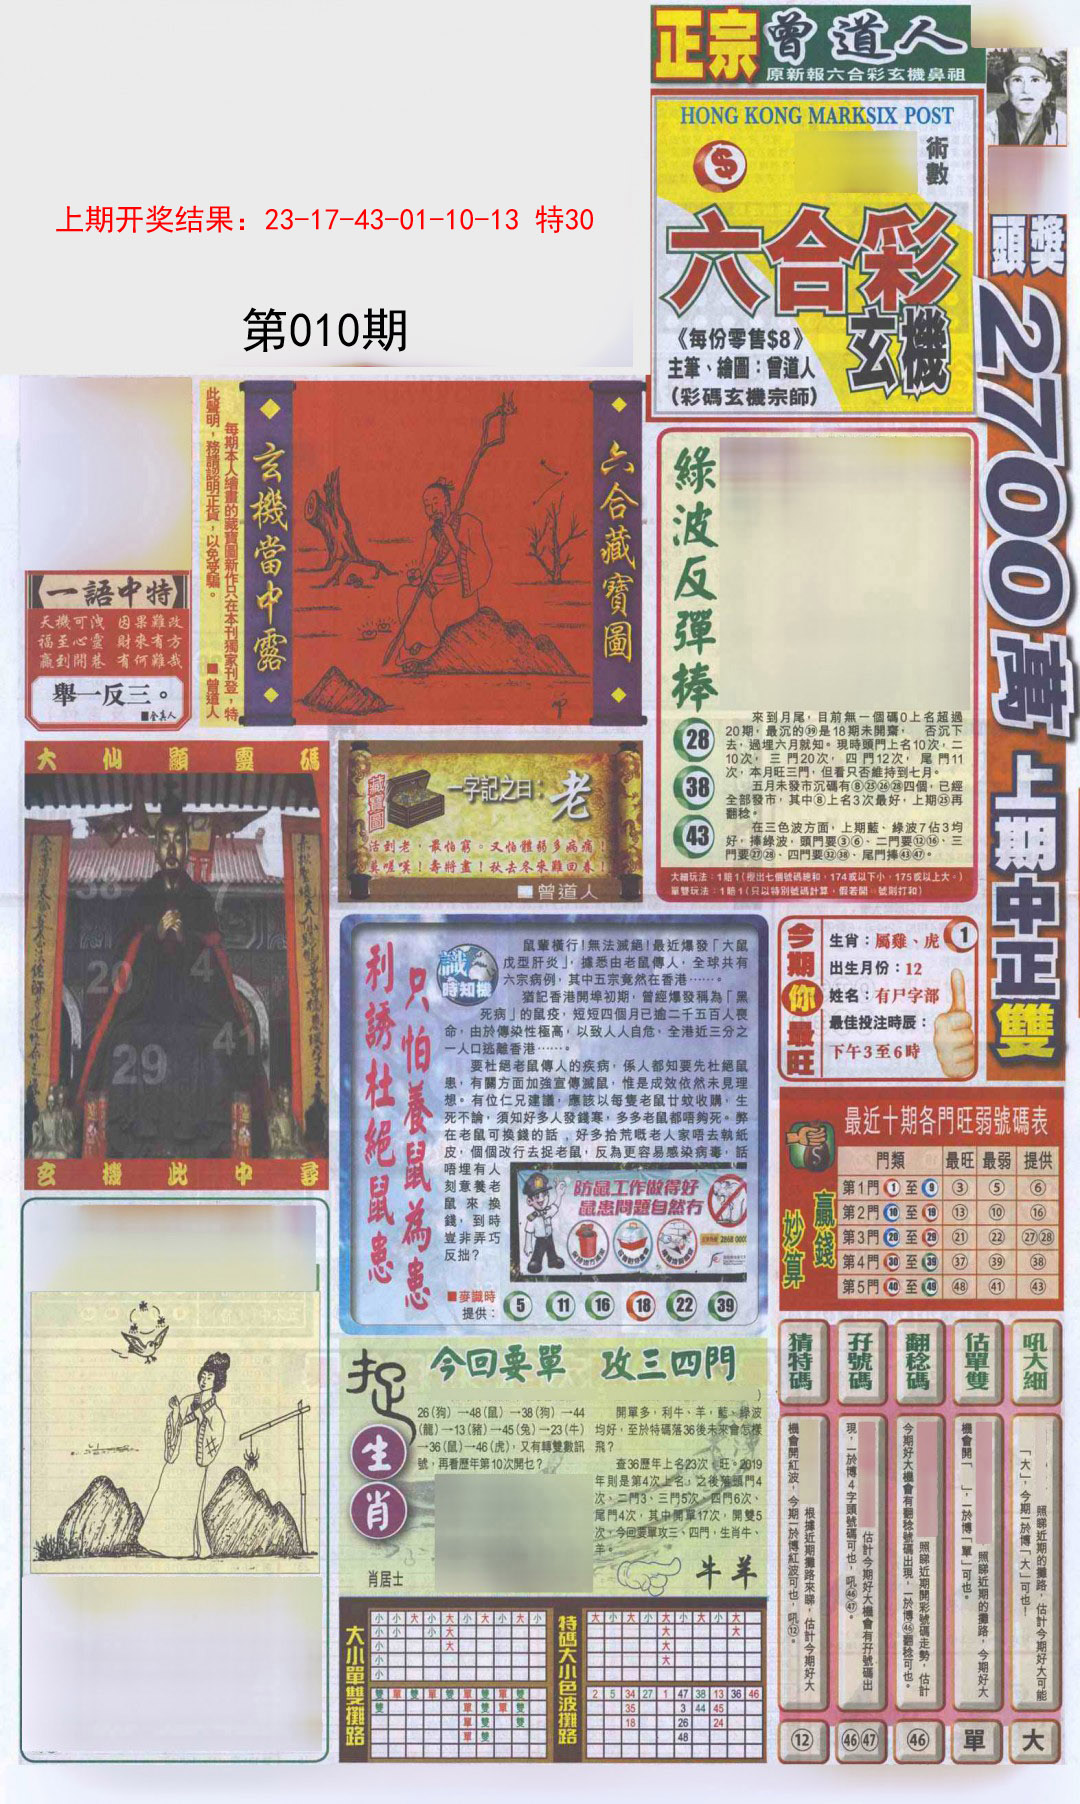 正宗 曾道人
原新報六合彩玄機鼻祖
HONG KONG MARKSIX POST
術數
六合彩
玄機
《每份零售$8》
主筆、繪圖：曾道人
（彩碼玄機宗師）
頭獎
2700萬
上期中正雙
上期开奖结果：23-17-43-01-10-13 特30
第010期
一語中特
天機可洩 因果難改
福至心靈 財來有方
贏到開巷 有何難哉
舉一反三。
每期本人繪畫的藏寶圖新作只在本刊獨家刊登，特
此聲明，務請認明正貨，以免受騙。
■曾道人
玄機當中露
六合藏寶圖
綠波反彈捧
28
38
43
來到月尾，目前無一個碼0上名超過
20期，最沉的㊴是18期未開齋， 否沉下
去，過埋六月就知。現時頭門上名10次，二
10次，三門20次，四門12次，尾門11
次，本月旺三門，但看只否維持到七月。
五月未發市沉碼有⑧㉕㉖㉘四個，已經
全部發市，其中⑧上名3次最好，上期㉕再
翻稔。
在三色波方面，上期藍、綠波7佔3均
好，捧綠波，頭門要③⑥、二門要⑫⑯、三
門要㉗㉘、四門要㉜㊳、尾門捧㊸㊼。
大仙顯靈碼
20
4
41
29
玄機此中尋
藏寶圖
一字記之曰：老
活到老，最怕窮。又怕體弱多病痛！
莫嗟嘆！壽將盡！秋去冬來難回春！
曾道人
只怕養鼠為患
利誘杜絕鼠患
識時知機
鼠輩橫行！無法滅絕！最近爆發「大鼠
戊型肝炎」，據悉由老鼠傳人，全球共有
六宗病例，其中五宗竟然在香港……。
猶記香港開埠初期，曾經爆發稱為「黑
死病」的鼠疫，短短四個月已逾二千五百人喪
命，由於傳染性極高，以致人人自危，全港近三分之
一人口逃離香港……。
要杜絕老鼠傳人的疾病，係人都知要先杜絕鼠
患，有關方面加強宣傳滅鼠，惟是成效依然未見理
想。有位仁兄建議，應該以每隻老鼠廿蚊收購，生
死不論，須知好多人發錢寒，多多老鼠都唔夠死。弊
在老鼠可換錢的話，好多拾荒嘅老人家唔去執紙
皮，個個改行去捉老鼠，反為更容易感染病毒，話
唔埋有人
刻意養老
鼠來換
錢，到時
豈非弄巧
反拙？
防鼠工作做得好
鼠患問題自然冇
■麥識時
提供：
5 11 16 18 22 39
今期你最旺
生肖：屬雞、虎
出生月份：12
姓名：有尸字部
最佳投注時辰：
下午3至6時
1
最近十期各門旺弱號碼表
贏錢妙算
門類 最旺 最弱 提供
第1門①至⑨ ③ ⑤ ⑥
第2門⑩至⑲ ⑬ ⑩ ⑯
第3門⑳至㉙ ㉑ ㉒ ㉗㉘
第4門㉚至㊴ ㊲ ㊴ ㊳
第5門㊵至㊾ ㊽ ㊶ ㊸
捉生肖
今回要單 攻三四門
26(狗)→48(鼠)→38(狗)→44
(龍)→13(豬)→45(兔)→23(牛)
→36(鼠)→46(虎)，又有轉雙數訊
號，再看歷年第10次開乜？
肖居士
開單多，利牛、羊，藍、綠波
均好，至於特碼落36後未來會怎樣
飛？
查36歷年上名23次，旺。2019
年則是第4次上名，之後殖頭門4
次、二門3、三門5次、四門6次、
尾門4次，其中開單17次，開雙5
次，今回要單攻三、四門，生肖牛、
羊。
牛羊
大小單雙攤路
小 小 大 小 大 小 大 小 大 小
雙 單 雙 單 雙 單 雙 單 雙
特碼大小色波攤路
大 小 大 小 大 大 小 大
2 5 34 27 1 47 38 13 36 46
35 3 44 45
18 26 24
48
吼大細
照睇近期的攤路，估計今期好大可能
「大」，今期一於博「大」可也！
大
估單雙
照睇近期的攤路，今期好大
機會開「 」，一於博「單」可也。
單
翻稔碼
照睇近期開彩號碼走勢，估計
今期好大機會有翻稔號碼出現，一於博㊻翻稔可也。
㊻
孖號碼
估計今期好大機會有孖號碼出
現，一於博4字頭號碼可也，吼㊻㊼。
㊻㊼
猜特碼
根據近期攤路來睇，估計今期好大
機會開紅波，今期一於博紅波可也，吼⑫。
⑫